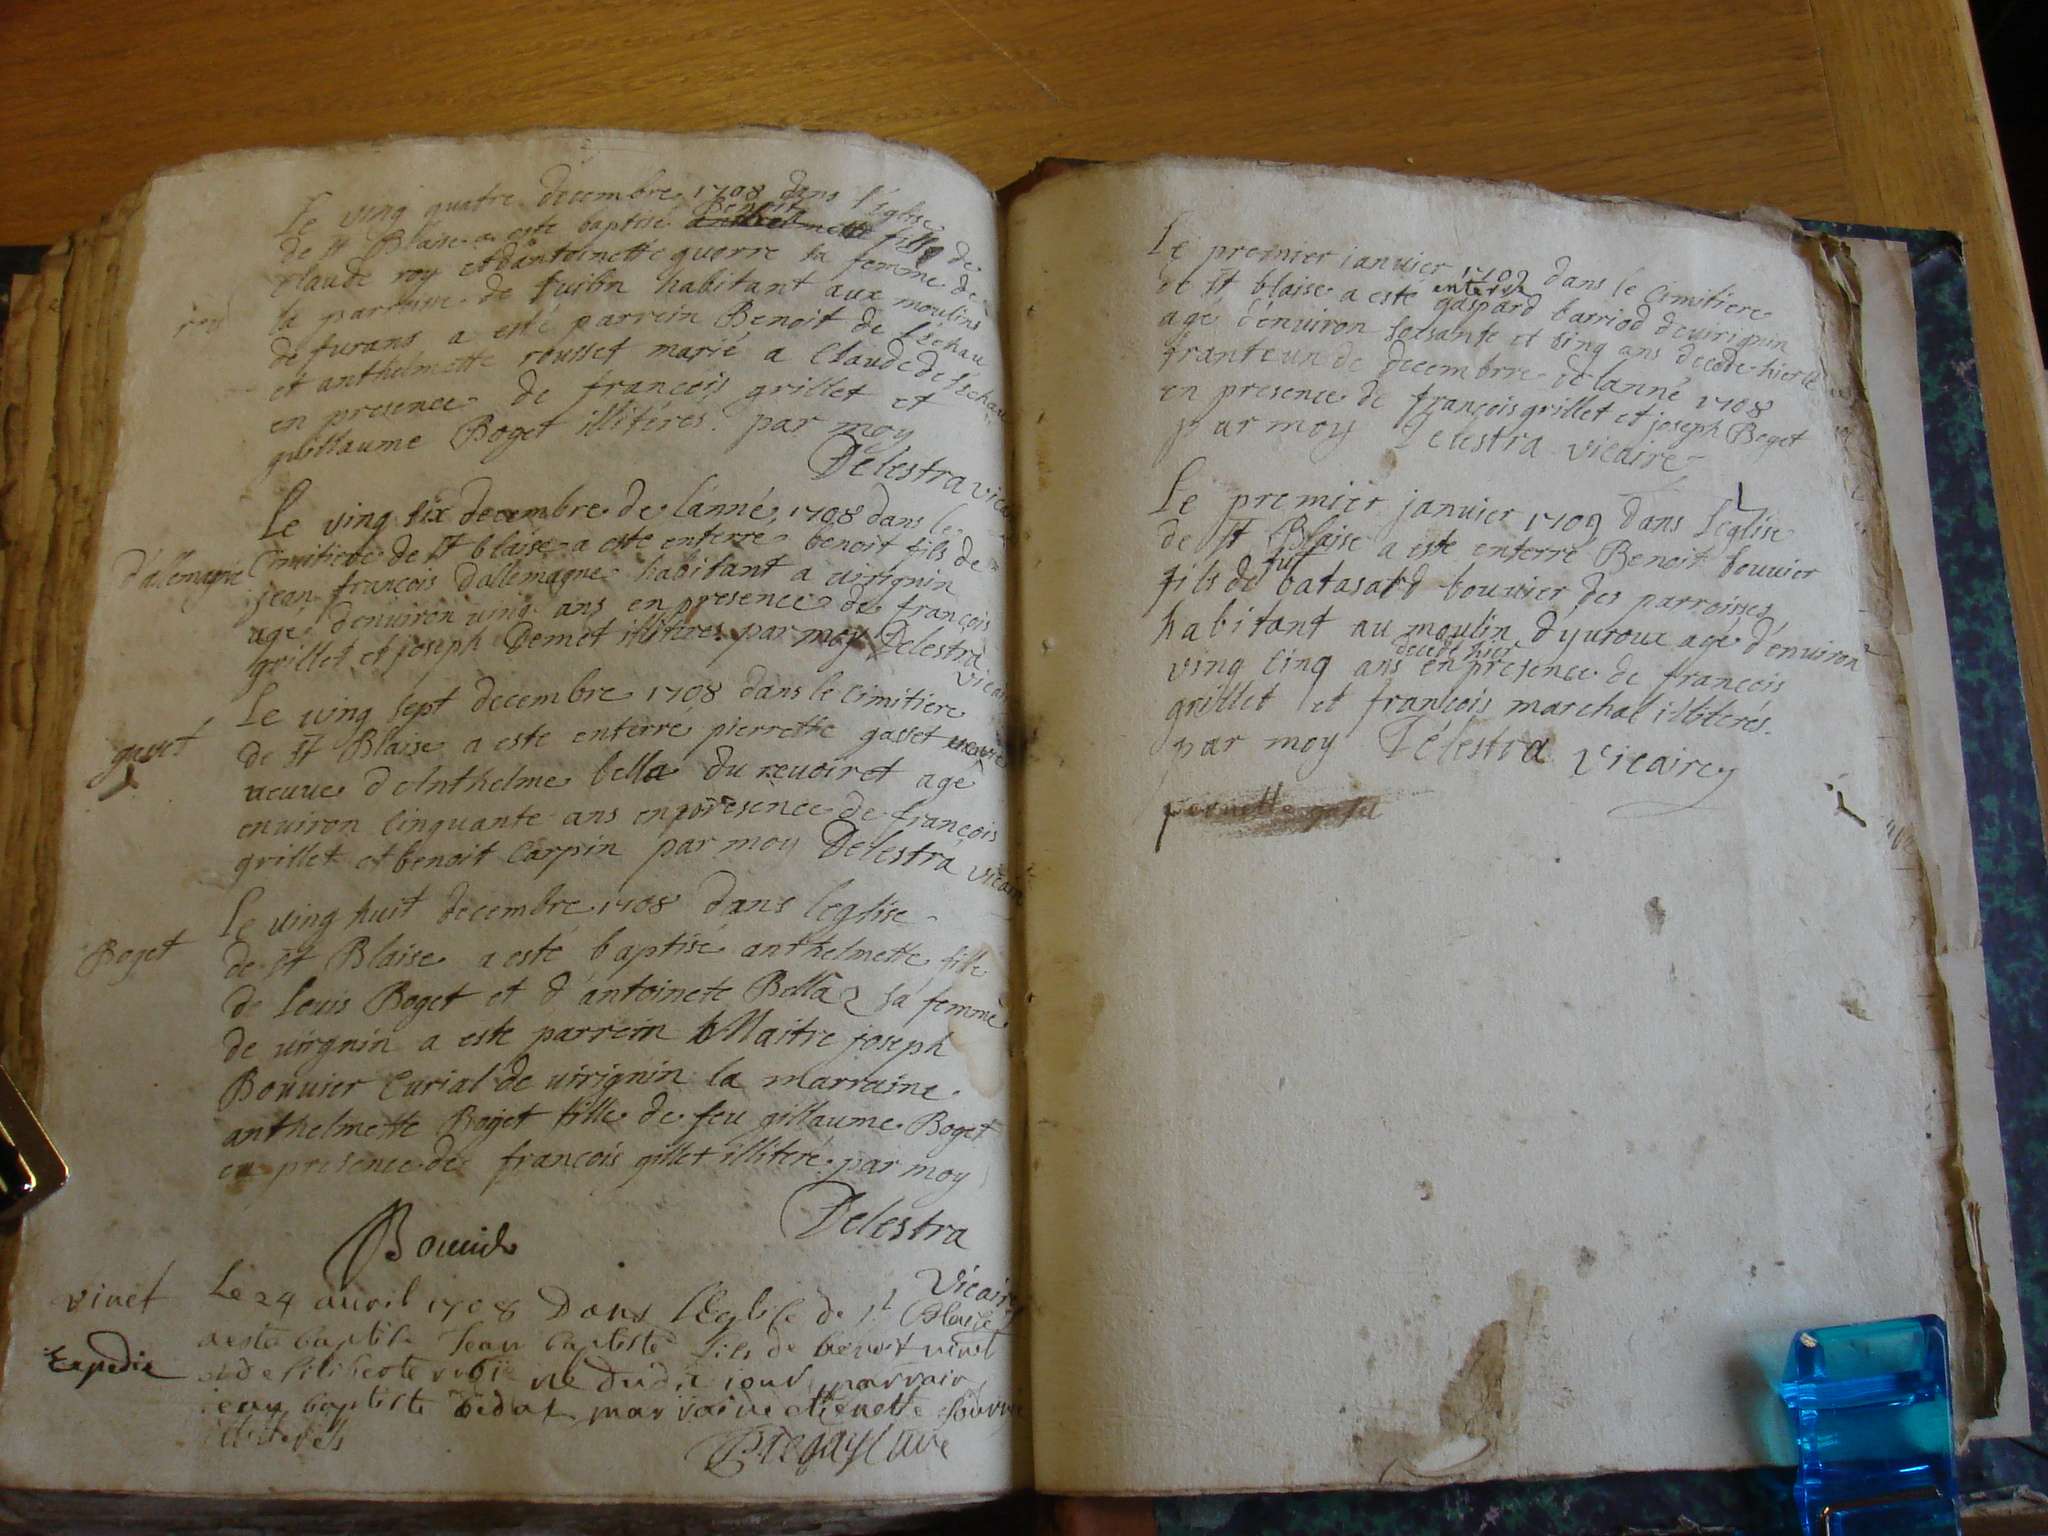 Le ving quatre decembre 1708 dans l'église
de st Blaise a esté baptisé Benoitte fille de
claude roy et d'antoinette guerre sa femme de
la parroisse de habitant aux moulins
de furans a esté parrein Benoit de l'échau
et anthelmette rousset marié a Claude de l'echau
en presence de françois grillet et
guillaume Boget illitérés. par moy
Delestra vicaire
Le ving six decembre de lanné 1708 dans le
d'allemagne
Cimitiere de st blaise a esté enterré benoit fils de
jean françois Dallemagne habitant a virignin
agé denviron ving ans en presence de françois
grillet et joseph Demet illitires par moy Delestra
vicaire
Le ving sept decembre 1708 dans le Cimitiere
gasset
de st Blaise a este enterré pierrette gasset
veuve d'Anthelme bella du revoiret agé
environ Cinquante ans en presence de françois
grillet et benoit Carpin par moy Delestra vicaire
Le ving huit decembre 1708 dans leglise
Boget
de st Blaise a esté baptisé anthelmette fille
de Louis Boget et d'antoinete Bella sa femme
de virgnin a este parrein Maitre joseph
Bouvier Curial de virignin la marraine
anthelmette Boget fille de feu gillaume Boget
en presence de françois gillet illiteré par moy
Delestra
Vicaire
vinet
Le 24 auvril 1708 Dans l'Eglise de st Blaise
a esté baptisé Jean baptiste fils de benoit vinet
Expedie
né dudit jour parrain
jean baptiste marraine etienette
illiterés
curé
Le premier janvier 1709 dans le Cimitiere
de st blaise a esté enterré gaspard barriod de virignin
agé d'environ soisante et cinq ans decedé hier le
trante un de decembrre de lanné 1708
en presence de françois grillet et joseph Boget
par moy Delestra vicaire
Le premier janvier 1709 dans L'eglise
de st Blaise a este enterré Benoit bouvier
fils de fut batasard bouvier des parroisses
habitant au moulin d'yuroux agé d'environ
ving Cinq ans decedé hier en presence de françois
grillet et françois marchal illiterés.
par moy Délestra vicaire
pernette gasset